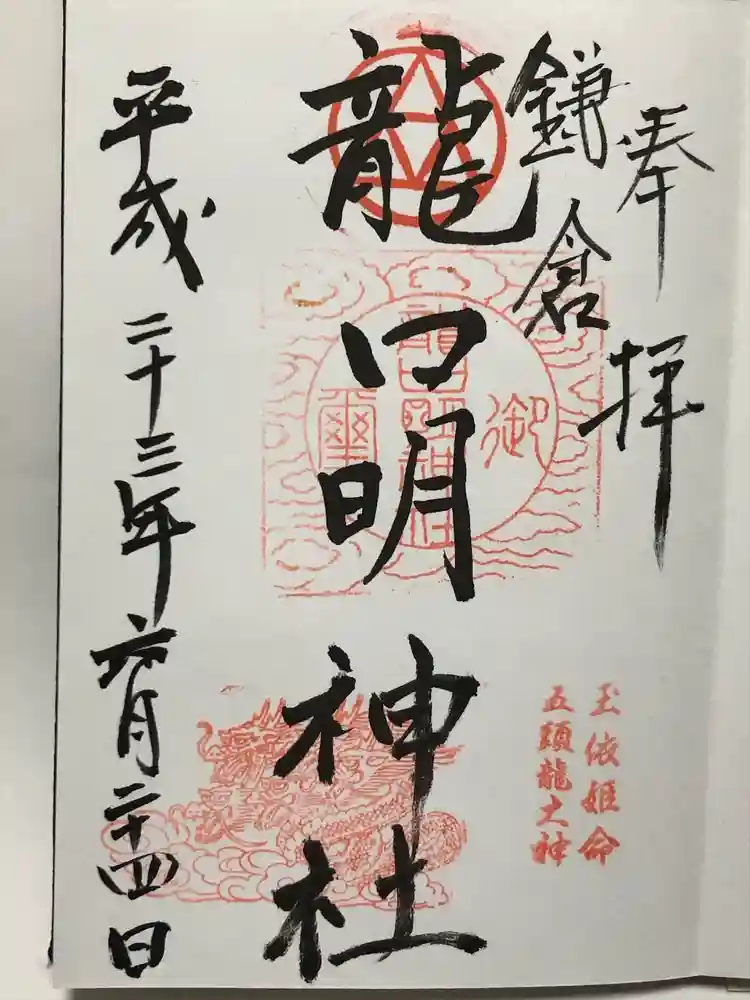 奉拝
鎌倉
龍口明神社
御
龍口明神社
璽
玉依姫命
五頭龍大神
平成二十三年六月二十四日